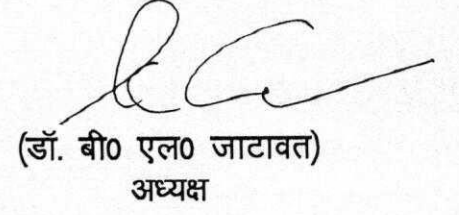 (डॉ. बी0 एल0 जाटावत)
अध्यक्ष